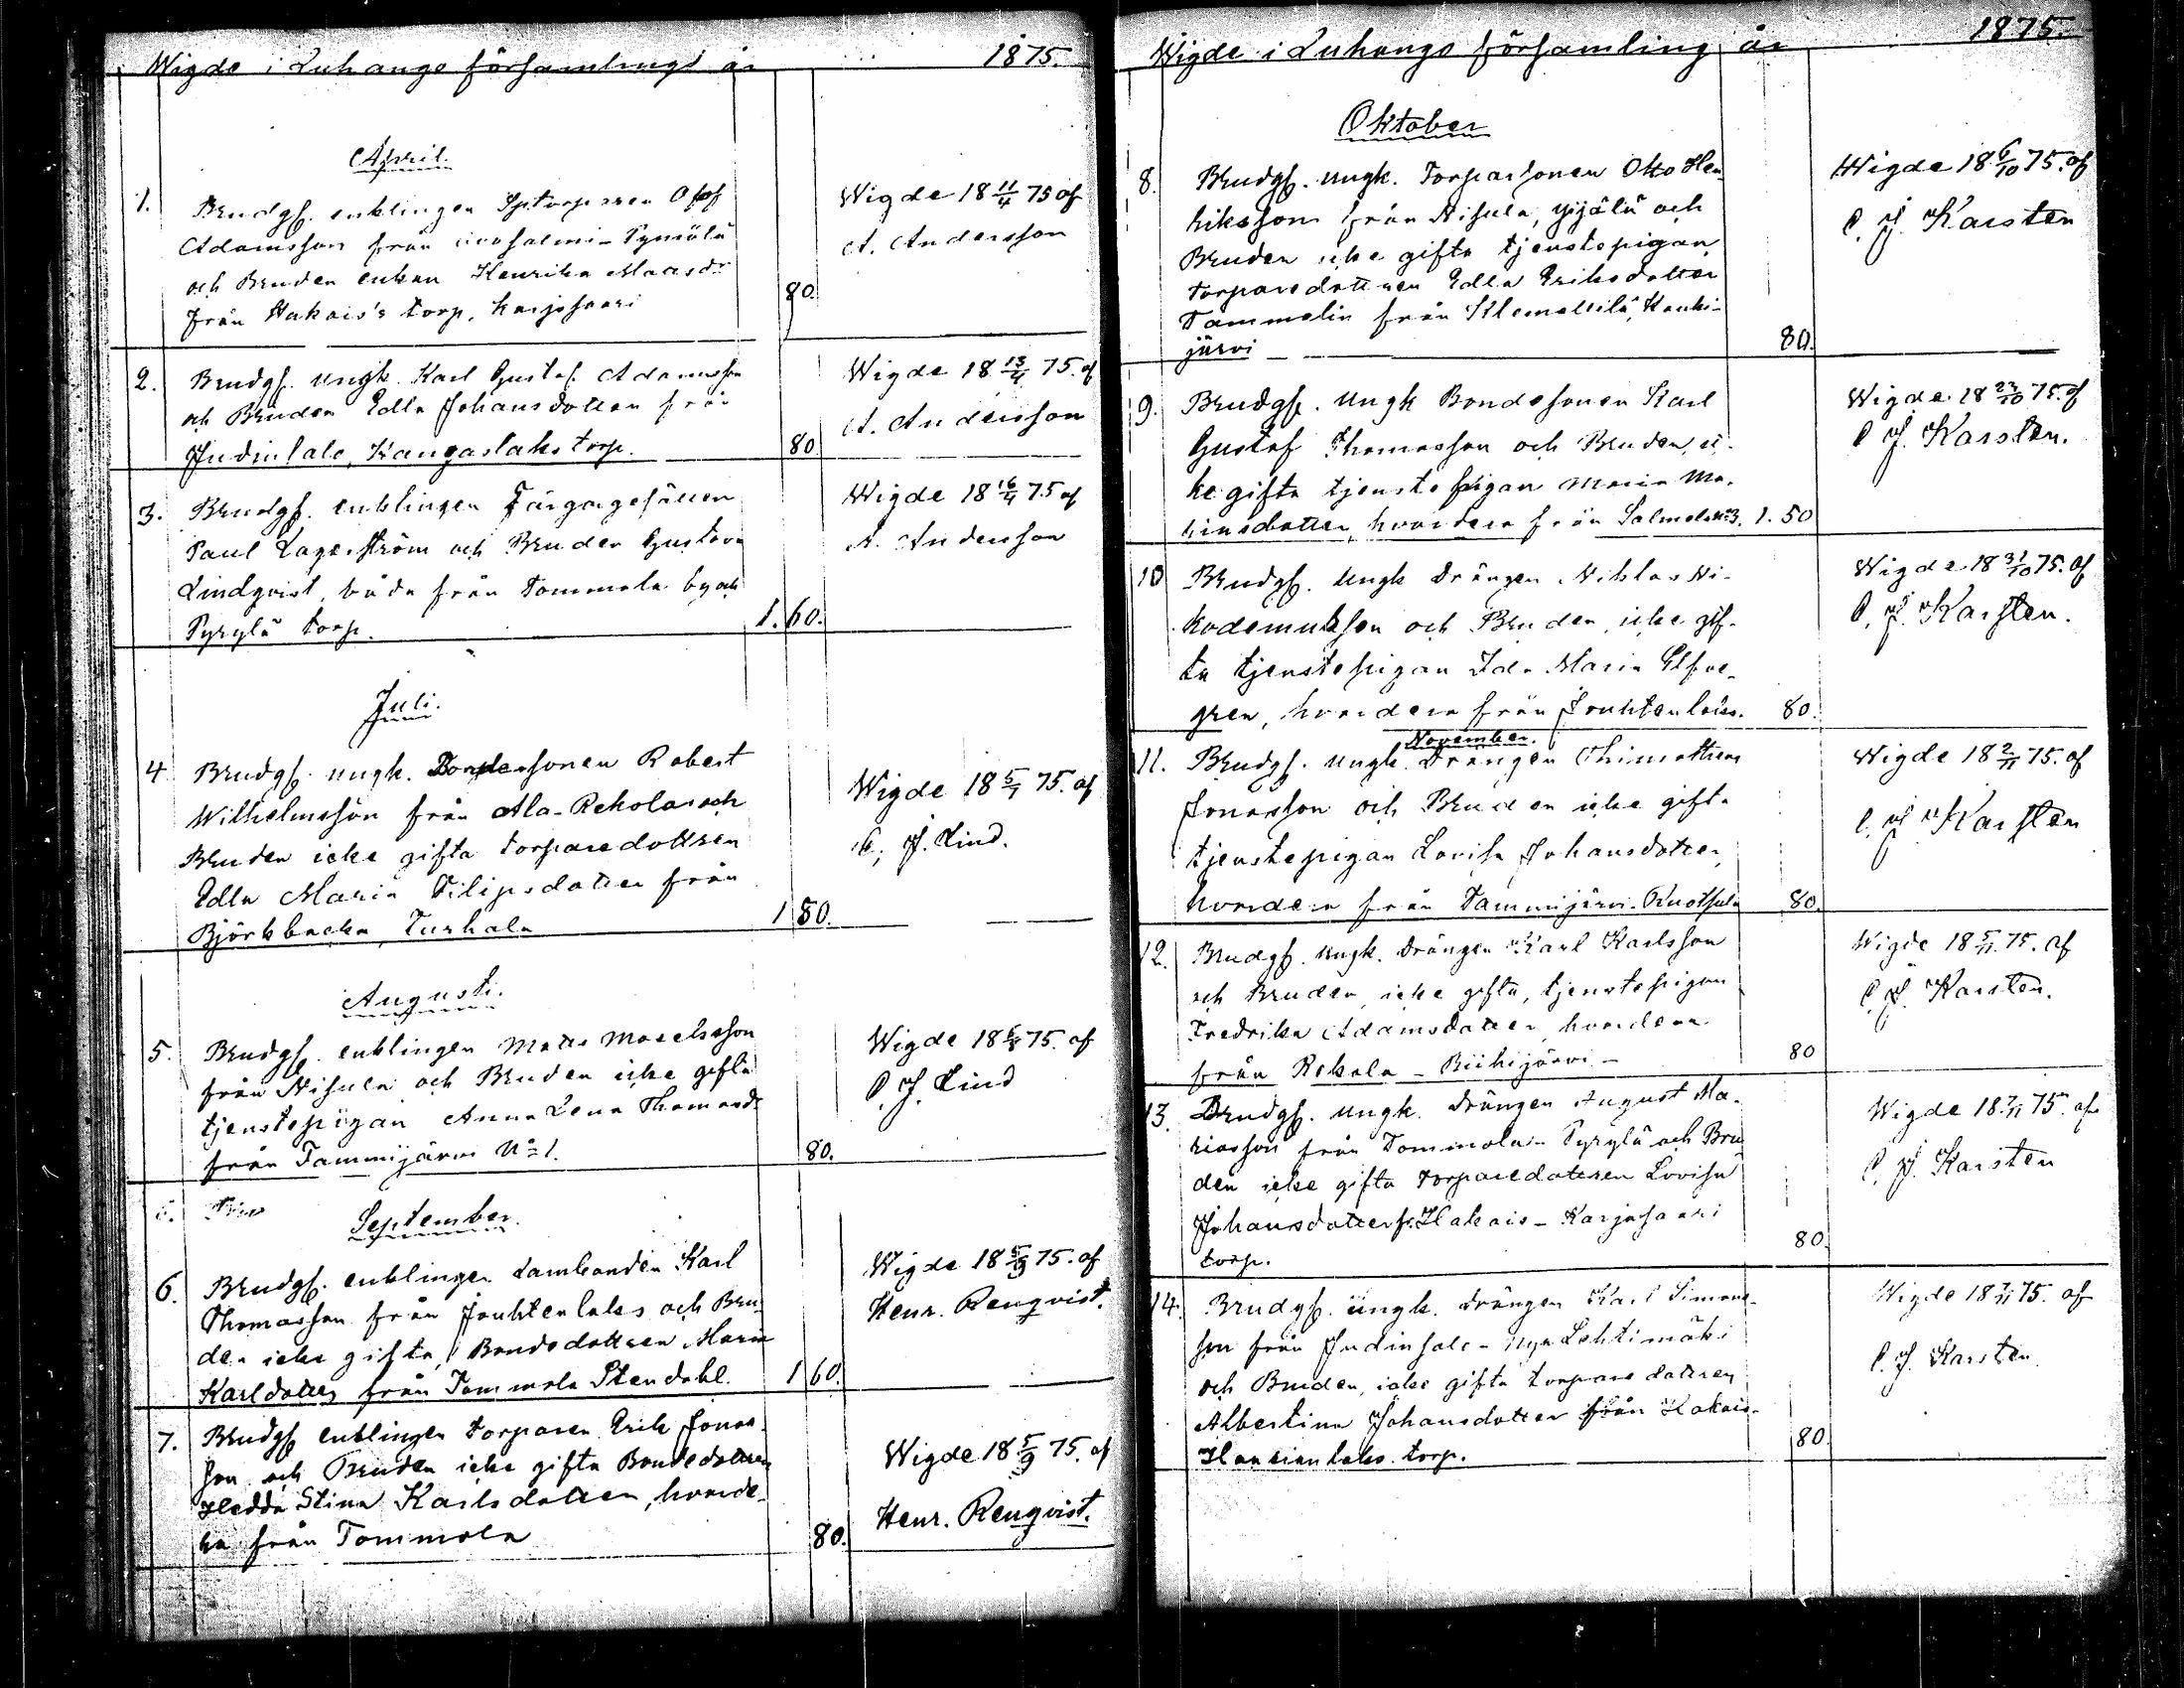 Wigde i Luhango församlings år 1875.
April.
1. Brudg. enklingen Sptorparen Olof
Adamsson från
och Bruden enkan Henrika Maasdr
från Hakais's torp, Karjosaari 80.
Wigde 18 11/4 75 af
A. Andersson
2. Brudg. ungk. Karl Gustaf Adamsson
och Bruden Edla Johansdotter från
Judinsalo, Kangaslaks torp. 80
Wigde 18 13/4 75. af
A. Andersson
3. Brudg. enklingen Färgargesällen
Paul Lagerström och Bruden Gustava
Lindqvist, båda från Tommola by och
Pyrylä torp. 1. 60.
Wigde 18 16/4 75 af
A. Andersson
Juli.
4. Brudg. ungk. sonen Robert
Wilhelmsson från Ala-Rekola och
Bruden icke gifta torparedottren
Edla Maria Filipsdotter från
Björkbacka, Turhala 1 80.
Wigde 18 5/7 75. af
C. J. Lind.
Augusti.
5. Brudg. enklingen Matts
från Nisula och Bruden icke gifta
tjenstepigan Anna Lena Thomasdr
från Tammijärvi No 1. 80.
Wigde 18 6/8 75. af
C. J. Lind
September.
6. Brudg. enklingen Karl
Thomasson från Jouhtenlaks och Bru-
den icke gifta, Bondedottren Maria
Karldotter från Tommola Stendahl. 1 60.
Wigde 18 5/9 75. af
Henr. Renqvist.
7. Brudg. enklingen torparen Erik Jonas-
son och Bruden icke gifta Bondedottren
Hedda Stina Karlsdotter, hvarde-
ra från Tommola 80.
Wigde 18 5/9 75. af
Henr. Renqvist.
Wigde i Luhango församling år 1875.
Oktober
8. Brudg. ungk. Torparsonen Otto Hen-
riksson från Nisula, Yijälä och
Bruden icke gifta tjenstepigan
torparedottren Edla Eriksdotter
Tammelin från Klemettilä, Hauki-
järvi 80.
Wigde 18 6/10 75. af
C. J. Karsten
9. Brudg. ungk Bondesonen Karl
Gustaf Thomasson och Bruden, ic-
ke gifta tjenstepigan Maria Ma-
hvardera från 1. 50
Wigde 18 23/10 75. af
C J. Karsten.
10 Brudg. ungk drängen Niklas Ni-
kodemusson och Bruden, icke gif-
ta tjenstepigan Ida Maria Elfve-
gren, hvardera från Jouhtenlaks. 80.
Wigde 18 31/10 75. af
C. J. Karsten.
November.
11. Brudg. ungk. Drängen Thimotheus
Jonasson och Bruden icke gifta
tjenstepigan Lovisa Johansdotter,
hvardera från Tammijärvi-Ruotsula 80.
Wigde 18 2/11 75. af
C. J. Karsten
12. Brudg. ungk. drängen Karl Karlsson
och Bruden, icke gifta, tjenstepigan
Fredrika Adamsdotter, hvardera
från Rekola - Riihijärvi - 80
Wigde 18 5/11 75. af
C. J. Karsten.
13. Brudg. ungk. drängen August Ma-
riasson från Tommola - Pyrylä och Bru-
den icke gifta torparedottren Lovisa
Johansdotter fr. Hakais - Karjosaari
torp. 80.
Wigde 18 7/11 75. af
C. J. Karsten
14. Brudg. ungk. drängen Karl Simons-
son från Judinsalo - nya Lehtimäki
och Bruden, icke gifta torpare dottren
Albertina Johansdotter från Hakais-
laks torp. 80
Wigde 18 7/11 75. af
C. J. Karsten.